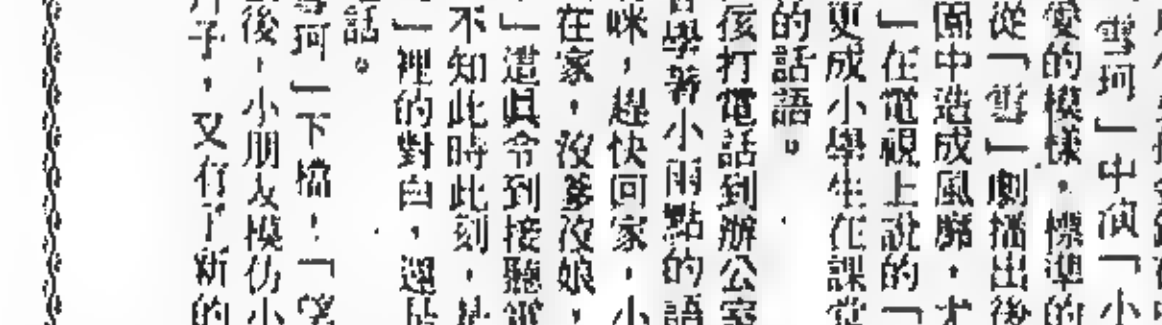 雪珂」中演「小
愛的模樣,標準的
從「雪」劇播出後
圍中造成風靡,才
」在電視上說的「
更成小學生在課堂
的話語。
孩打電話到辦公室
學著小雨點的語
咪,趕快回家,小
在家,沒爹沒娘,
」這真令到接聽電
不知此時此刻,是
」裡的對白,還是
話。
雪珂」下檔!「望
後,小朋友模仿小
子,又有了新的